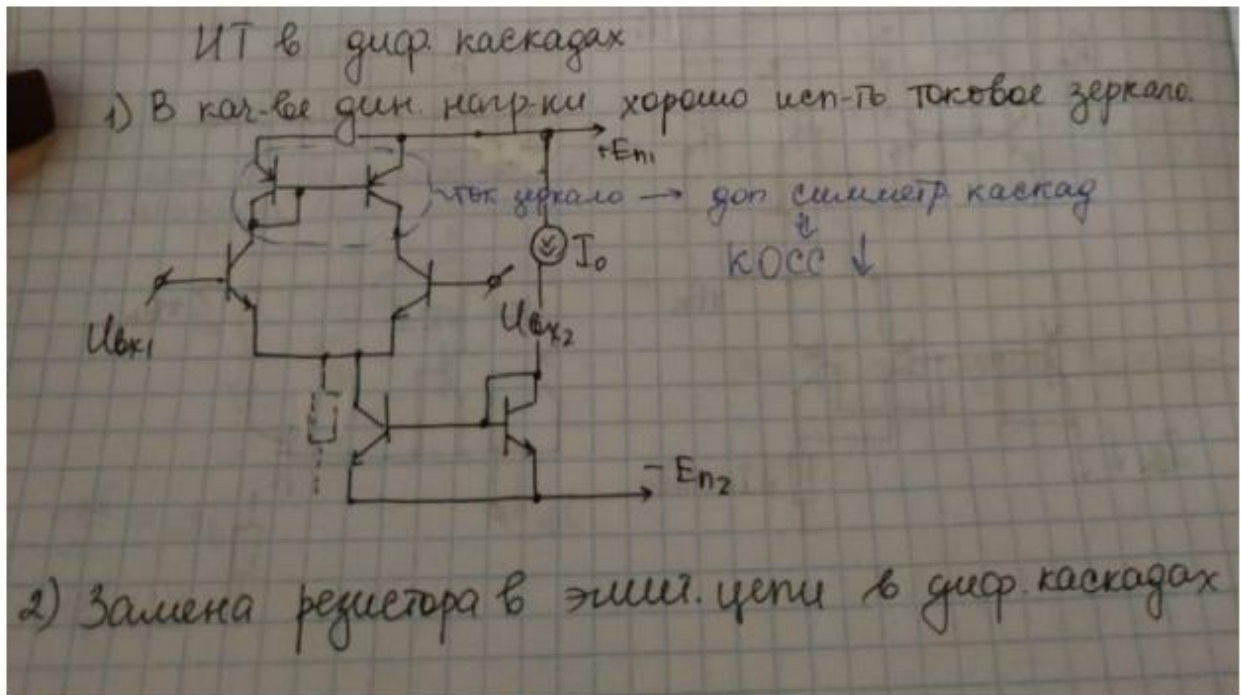 ИТ в диф. каскадах
1) В кач-ве дин. нагр-ки хорошо исп-ть токовое зеркало.
+Eп1
ток зеркало → доп симметр каскад
⇅
КОСС ↓
I0
Uвх1
Uвх2
- Eп2
2) Замена резистора в эмит. цепи в диф. каскадах